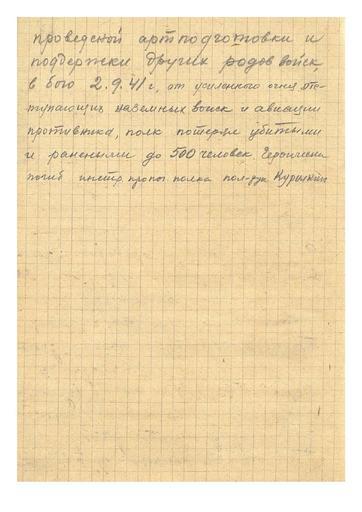 проведеной артподготовки и
поддержки других родов войск,
в бою 2.9.41 г, от усиленного огня отс-
тупающих наземных войск и авиации
противника, полк потерял убитыми
и ранеными до 500 человек. Героически
погиб инстр. пропог. полка пол-рук